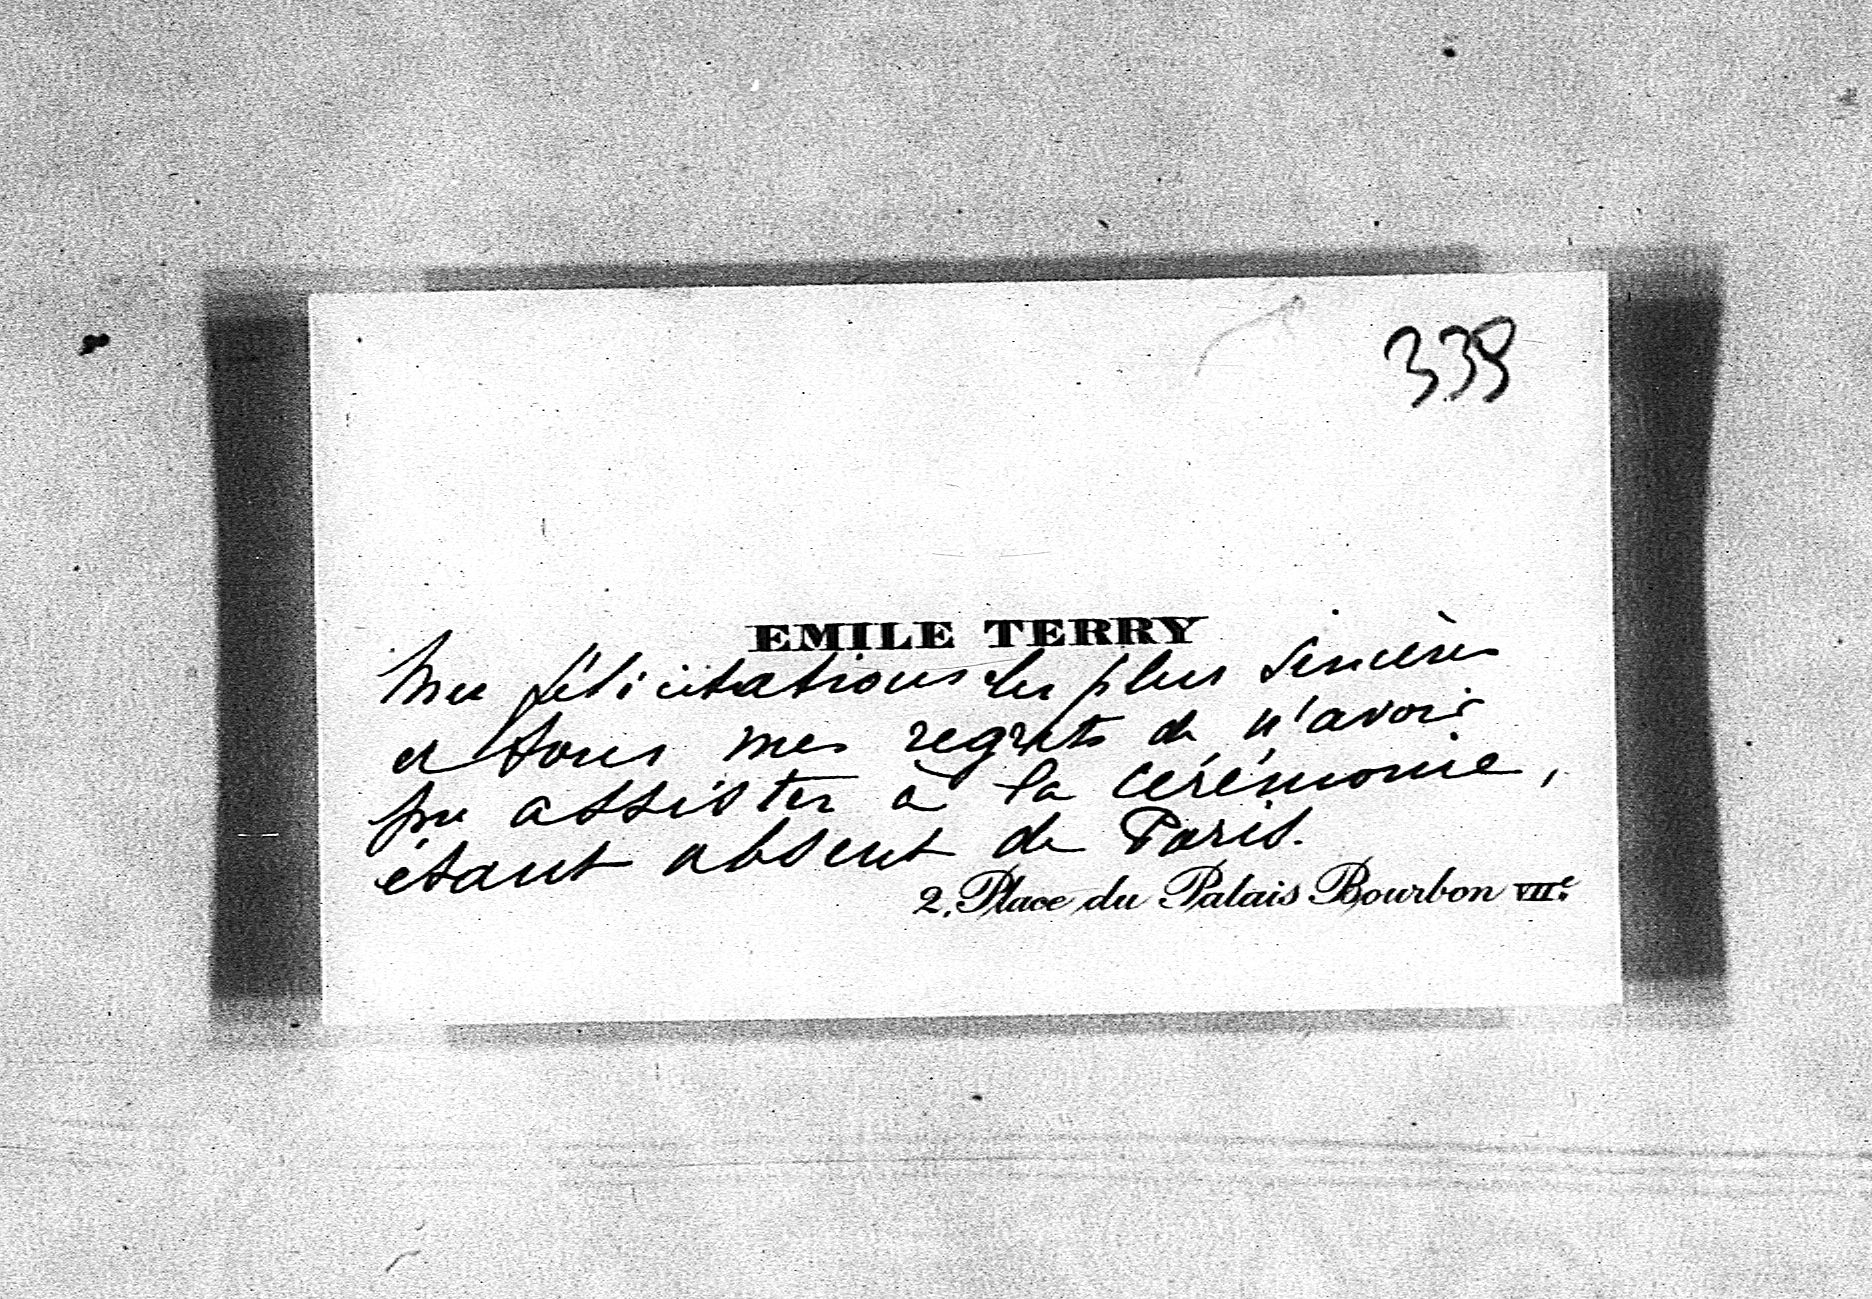 339
EMILE TERRY
Mes félicitations les plus sincères
et tous mes regrets de n'avoir
pu assister à la cérémonie,
étant absent de Paris.
2, Place du Palais Bourbon VIIe.